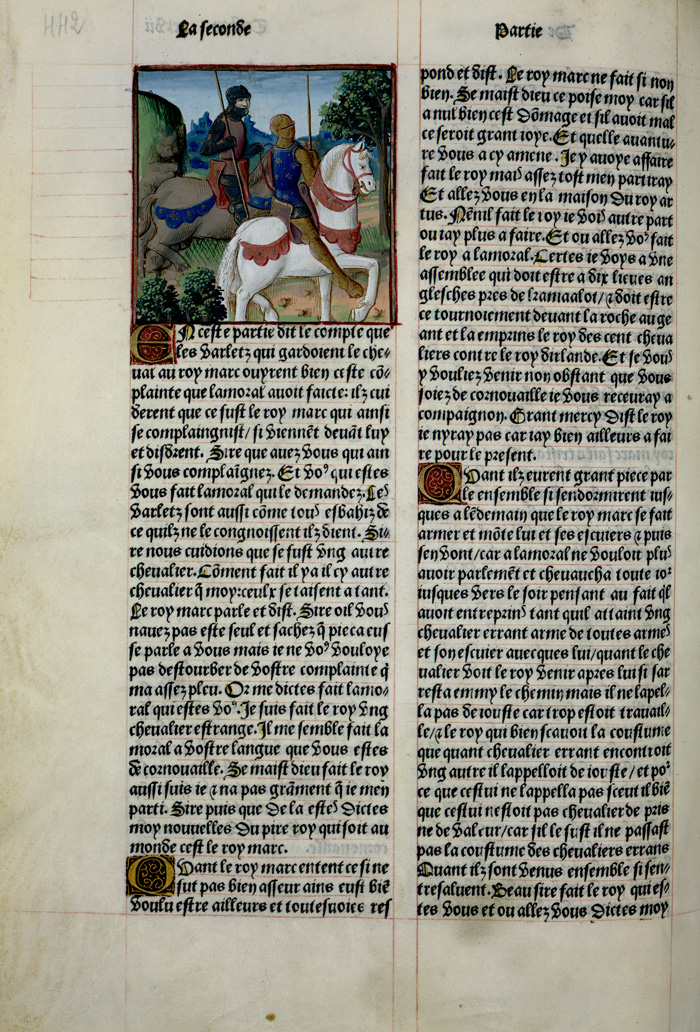 La seconde
Partie
EN ceste partie dit le compte que
les varletz qui gardoient le che-
ual au roy marc ouyrent bien ceste cõ-
plainte que lamoral auoit faicte: ilz cui
derent que ce fust le roy marc qui ainsi
se complaingnist/ si viennẽt deuãt luy
et disdrent. Sire que auez vous qui ain
si vous complaĩgnez. Et voꝰ qui estes
vous fait lamoral qui le demandez. Les
varletz sont aussi cõme tous esbahiz de
ce quilz ne le congnoissent ilz dient. Si-
re nous cuidions que se fust vng autre
cheualier. Cõment fait il ya il cy autre
cheualier q̃ moy: ceulx se taisent a tant.
Le roy marc parle et dist. Sire oil vous
nauez pas este seul et sachez q̃ pieca eus
se parle a vous mais ie ne voꝰ vouloye
pas destourber de vostre complainte q̃
ma assez pleu. Or me dictes fait lamo-
ral qui estes voꝰ. Je suis fait le roy vng
cheualier estrange. Il me semble fait la
moral a vostre langue que vous estes
de cornouaille. Se maist dieu fait le roy
aussi suis ie ⁊ na pas grãment q̃ ie men
parti. Sire puis que de la estes dictes
moy nouuelles du pire roy qui soit au
monde cest le roy marc.
QVant le roy marc entent ce si ne
sut pas bien asseur ains eusi biẽ
voulu estre ailleurs et toutesuoies res
pond et dist. Le roy marc ne fait si non
bien. Se maist dieu ce poise moy car sil
a nul bien cest dõmage et sil auoit mal
ce seroit grant ioye. Et quelle auantu-
re vous a cy amene. Je y auoye affaire
fait le roy mais assez tost men partiray
Et allez vous en la maison du roy ar
tus. Nẽnil fait le roy ie vois autre part
ou iay plus a faire. Et ou allez voꝰ fait
le roy a lamoral. Certes ie voys a vne
assemblee qui doit estre a dix lieues an
glesches pres de kramaalot/ ⁊ doit estre
ce tournoiement deuant la roche au ge
ant et la emprins le roy des cent cheua
liers contre le roy dirlande. Et se vous
y vouliez venir non obstant que vous
soiez de cornouaille ie vous receuray a
compaignon. Grant mercy dist le roy
ie nyray pas car iay bien ailleurs a fai
re pour le present.
QVant ilz eurent grant piece par
le ensemble si sendormirent ius-
ques a lẽdemain que le roy marc se fait
armer et mõte lui et ses escuiers ⁊ puis
sen vont/ car a lamoral ne vouloit plus
auoir parlemẽt et cheuaucha toute ioꝛ
iusques vers le soir pensant au fait q̃l
auoit entreprins tant quil attaint vng
cheualier errant arme de toutes armes
et son escuier auecques lui/ quant le che
ualier voit le roy venir apres lui si sar
resta emmy le chemin mais il ne lapel-
la pas de iouste car trop estoit trauail-
le/ ⁊ le roy qui bien scauoit la coustume
que quant cheualier errant encontroit
vng autre il lappelloit de iouste/ et poꝛ
ce que cestui ne lappella pas sceut il biẽ
que cestui nestoit pas cheualier de pris
ne de valeur/ car sil le fust il ne passast
pas la coustume des cheualiers errans
Quant ilz sont venus ensemble si sen-
tresaluent. Beau sire fait le roy qui es-
tes vous et ou allez vous dictes moy